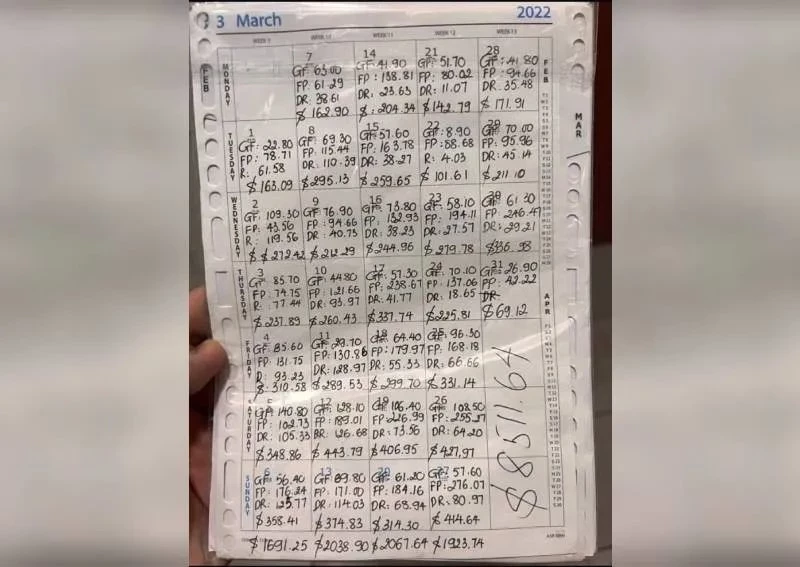 3 March
2022
WEEK 9
WEEK 10
WEEK 11
WEEK 12
WEEK 13
FEB
MONDAY
7
GF: 63.00
FP: 61.29
DR: 38.61
$ 162.90
14
GF: 41.90
FP: 138.81
DR: 23.63
$: 204.34
21
GF: 51.70
FP: 80.02
DR: 11.07
$ 142.79
28
GF: 41.80
FP: 94.66
DR: 35.48
$ 171.91
FEB
MAR
TUESDAY
1
GF: 22.80
FP: 78.71
R: 61.58
$ 163.09
8
GF: 69.30
FP: 115.44
DR: 110.39
$295.13
15
GF: 57.60
FP: 163.78
DR: 38.27
$259.65
22
GF: 8.90
FP: 88.68
R: 4.03
$ 101.61
29
GF: 70.00
FP: 95.96
DR: 45.14
$ 211.10
WEDNESDAY
2
GF: 109.30
FP: 43.56
R: 119.56
$ 272.42
9
GF: 76.90
FP: 94.66
DR: 40.73
$ 212.29
16
GF: 73.80
FP: 132.93
DR: 38.23
$244.96
23
GF: 58.10
FP: 194.11
DR: 27.57
$ 279.78
30
GF: 61.30
FP: 246.47
DR: 29.21
$336.98
THURSDAY
3
GF: 85.70
FP: 74.75
R: 77.44
$ 237.89
10
GF: 44.80
FP: 121.66
DR: 93.97
$ 260.43
17
GF: 57.30
FP: 238.67
DR: 41.77
$ 337.74
24
GF: 70.10
FP: 137.06
DR: 18.65
$225.81
31
GF: 26.90
FP: 42.22
DR
$ 69.12
APR
FRIDAY
4
GF: 85.60
FP: 131.75
R: 93.23
$: 310.58
11
GF: 29.70
FP: 130.86
DR: 128.97
$ 289.53
18
GF: 64.40
FP: 179.97
DR: 55.33
$ 299.70
25
GF: 96.30
FP: 168.18
DR: 66.66
$ 331.14
SATURDAY
5
GF: 140.80
FP: 102.73
DR: 105.33
$348.86
12
GF: 128.10
FP: 189.01
DR: 126.68
$ 443.79
19
GF: 106.40
FP: 226.99
DR: 73.56
$406.95
26
GF: 108.50
FP: 255.27
DR: 64.20
$427.97
SUNDAY
6
GF: 56.40
FP: 176.24
DR: 125.77
$358.41
13
GF: 89.80
FP: 171.00
DR: 114.03
$ 374.83
20
GF: 61.20
FP: 184.16
DR: 68.94
$ 314.30
27
GF: 57.60
FP: 276.07
DR: 80.97
$ 414.64
$8511.64
$1691.25
$2038.90
$2067.64
$1923.74